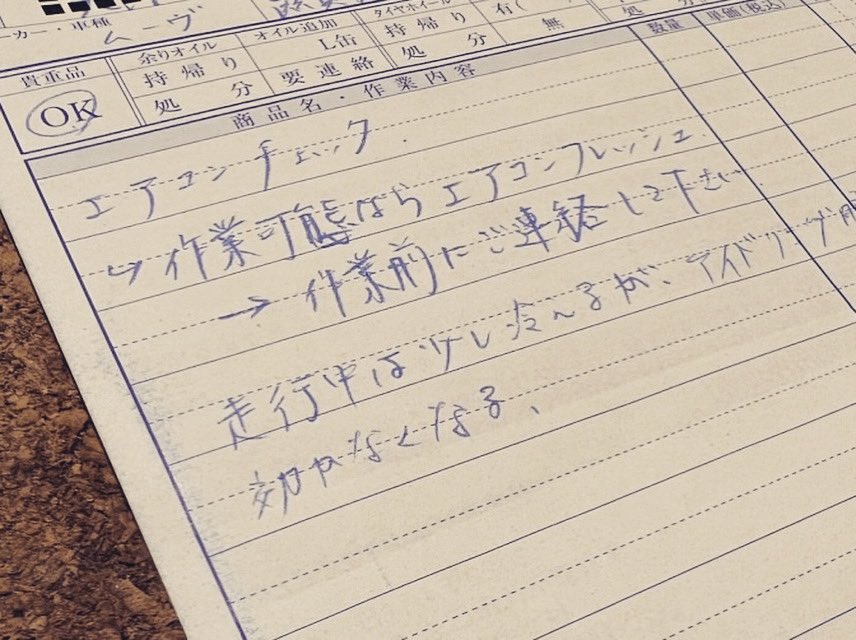 カー・車種 ムーヴ
貴重品 余りオイル オイル追加 タイヤホイール 有(
OK 持帰り L缶 持帰り 無 処
処分 要連絡 処分
商品名・作業内容 数量 単価(税込)
エアコンチェック
↳ 作業可態ならエアコンフレッシュ
→ 作業前にご連絡して下さい
走行中は少し冷えるが、アイドリング
効かなくなる、